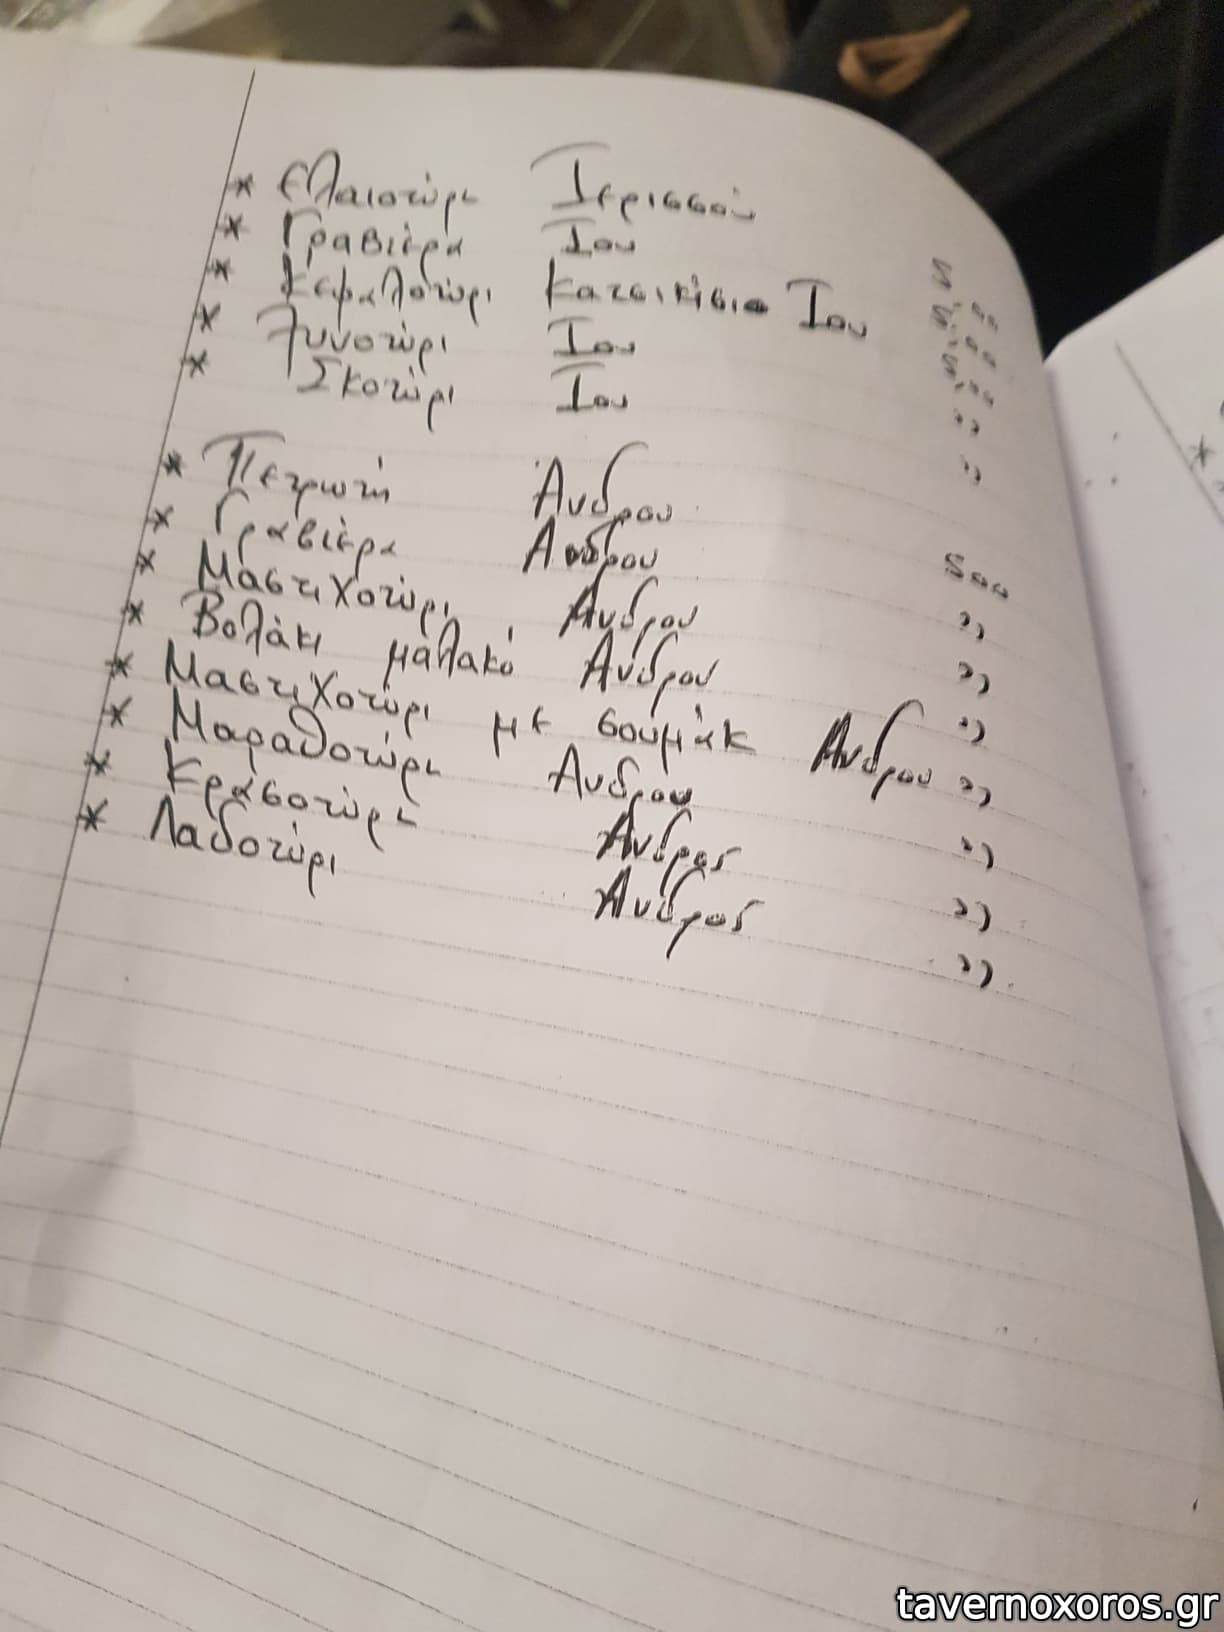 * Ελαιοτύρι Ιερισσού
* Γραβιέρα Ιου 5,00
* Κεφαλοτύρι κατσικίσιο Ιου 5,00
* Ξυνοτύρι Ιου 5,00
* Σκοτύρι Ιου ,,
,,
* Πετρωτή Άνδρου
* Γραβιέρα Ανδρου 500
* Μαστιχοτύρι Ανδρου ,,
* Βολάκι μαλακό Ανδρου ,,
* Μαστιχοτύρι με σουμάκ Ανδρου ,,
* Μαραθοτύρι Ανδρου ,,
* Κρασοτύρι Ανδρος ,,
* Λαδοτύρι Ανδρος ,,
,,
tavernoxoros.gr